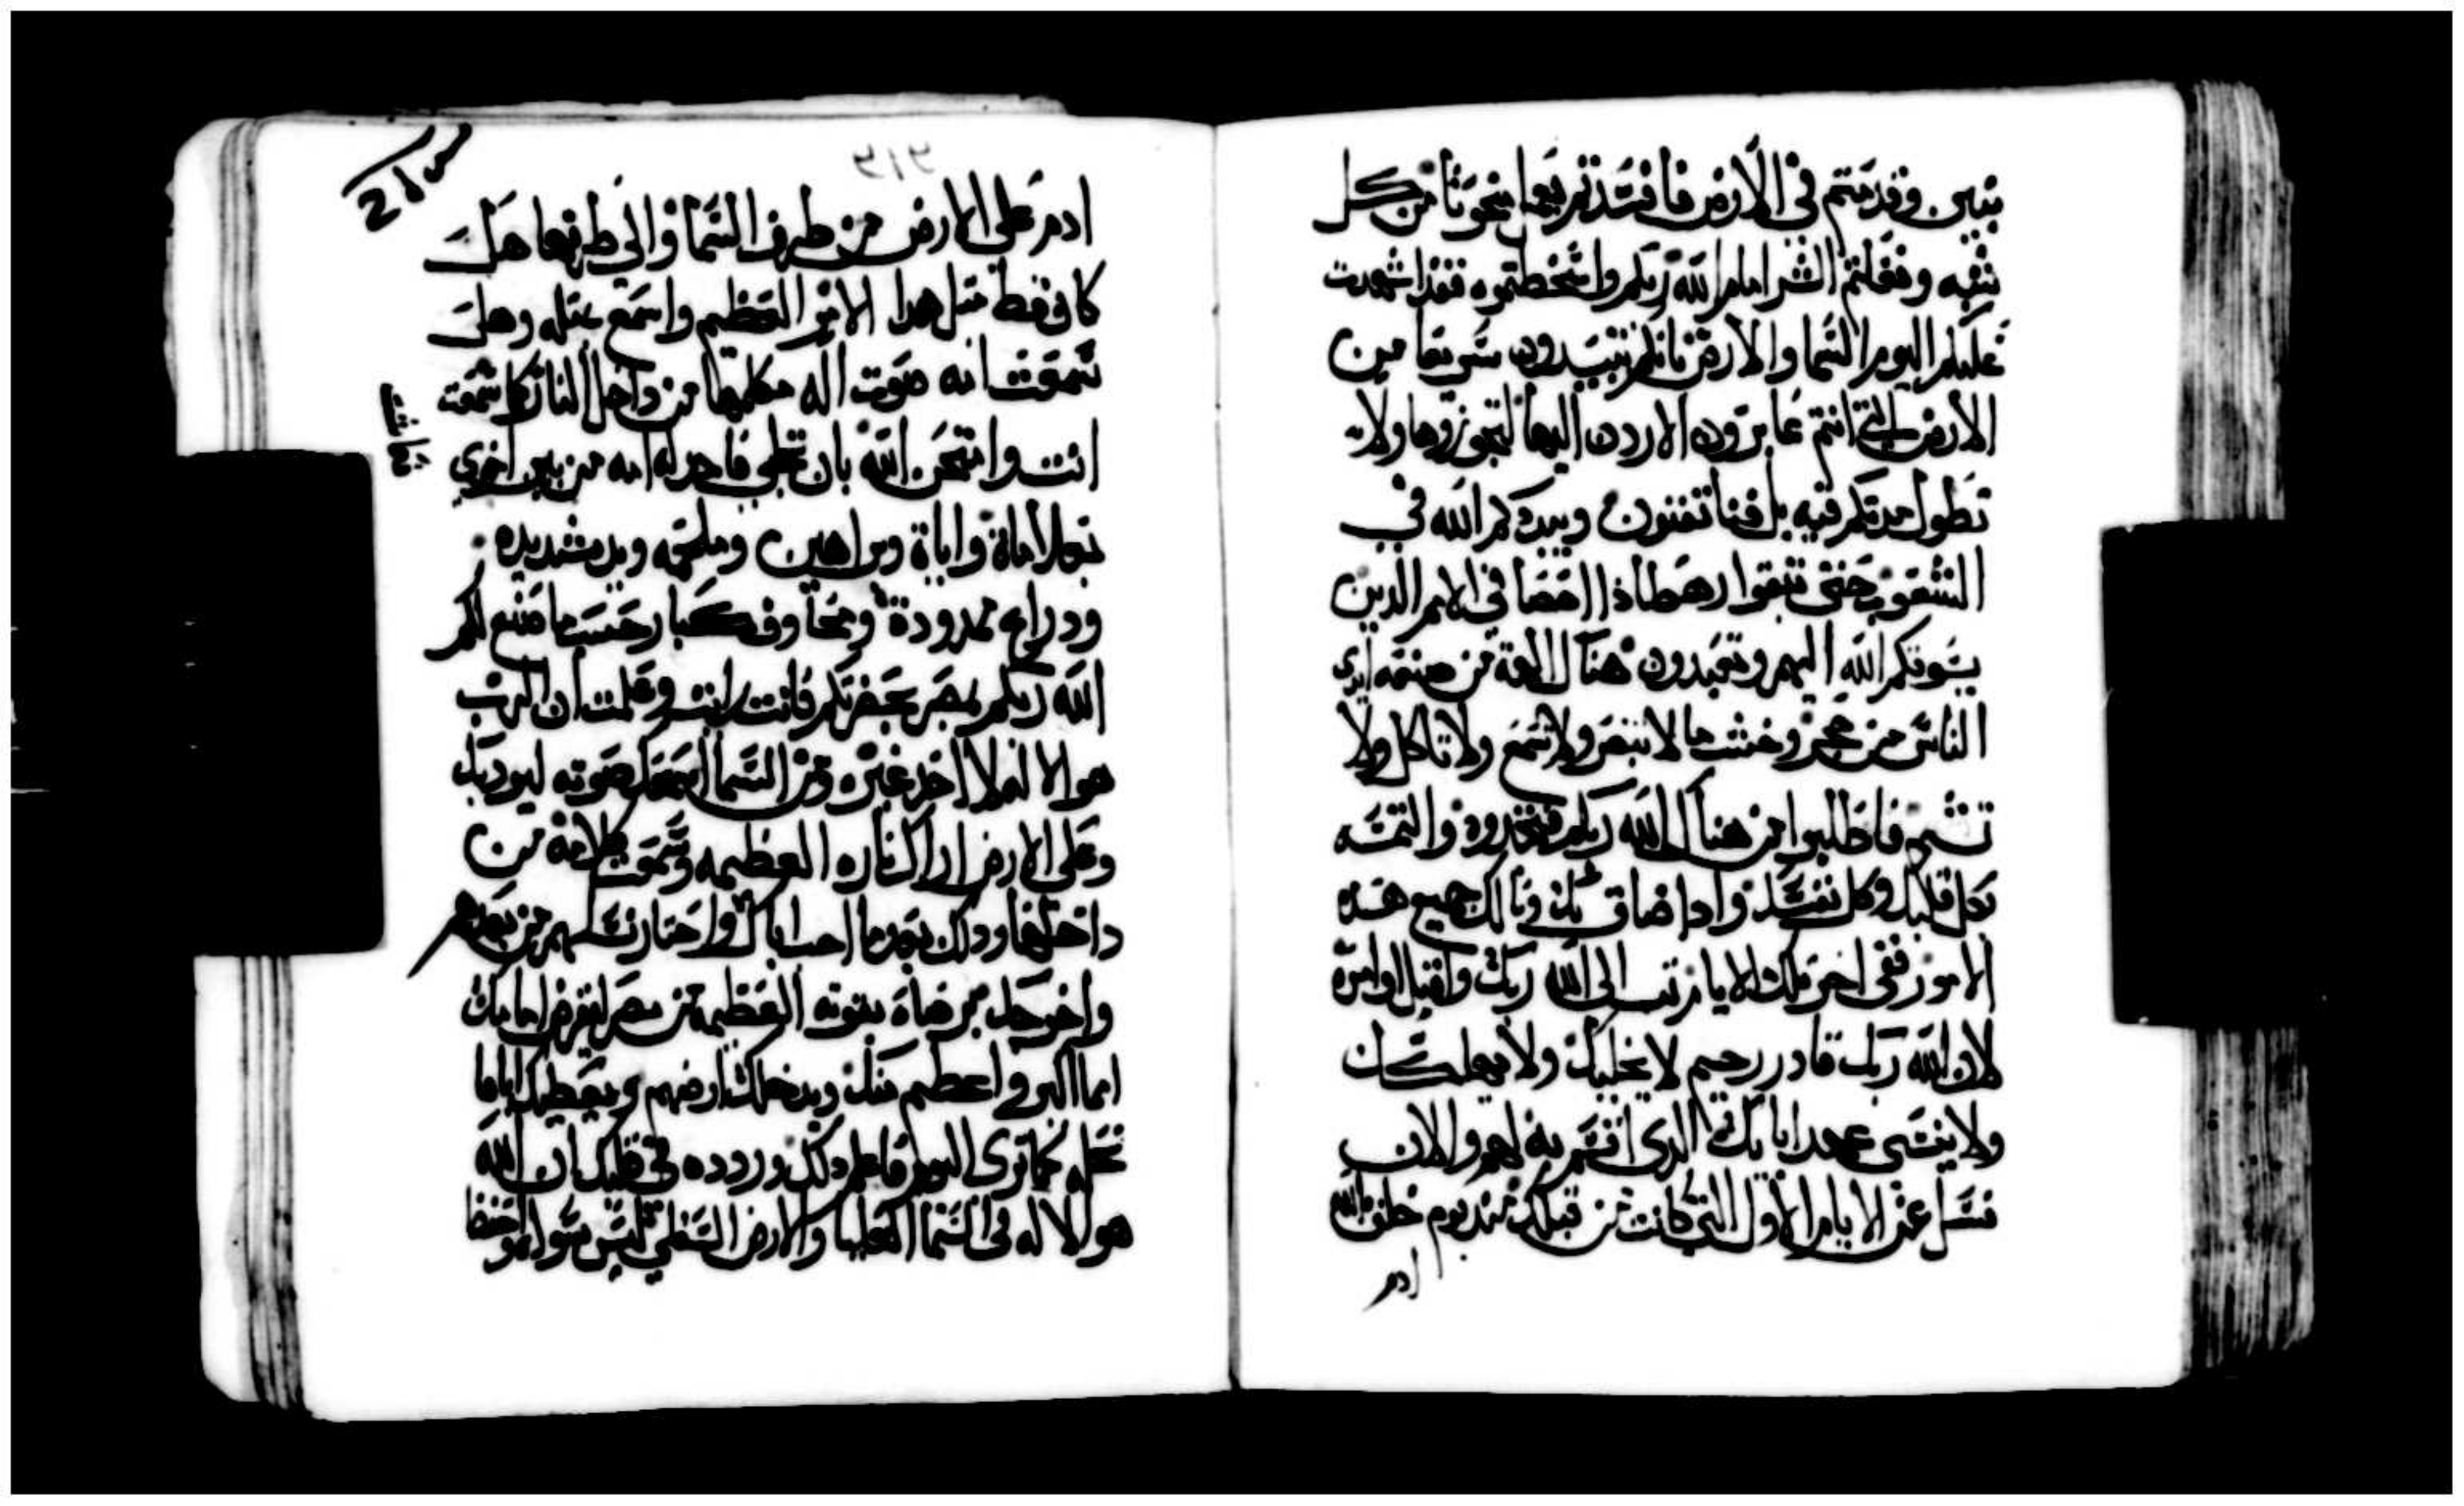 بنين وقدمتم في الأرض فافسدتم بيعا منحوتا من كل
شبه وفعلتم الشر امام الله ربكم واسخطتموه فقد اشهدت
عليكم اليوم السما والارض بانكم تبيدون سريعا من
الأرض التي انتم عابرون الاردن اليها لتجوزوها ولا
تطول مدتكم فيه بل فنا تفنون ويبددكم الله في
الشعوب حتى تبقوا رهطا ذا احصا في الامم الذين
يسوقكم الله اليهم وتعبدون هناك الهة من صنعة ايدي
الناس من حجر وخشب ما لا تبصر ولا تسمع ولا تاكل ولا
تشم فاطلبوا من هناك الله ربكم فتجدوه والتمسه
بكل قلبك وكل نفسك واذا ضاق بك ونالك جميع هذه
الامور ففي اخر تلك الايام تب الى الله ربك واقبل اوامره
لان الله ربك قادر رحيم لا يخليك ولا يهلكك
ولا ينسى عهد اباك الدي اقسم به لهم والان
فسل عن الايام الأول التي كانت من قبلك مند يوم خلق الله
ادم
ادم على الارض من طرف السما والى طرفها هل
كان قط مثل هدا الامر العظيم واسمع بمثله وهل
سمعت امه صوت اله مكلمها من داخل النار كما سمعت
انت وامتحن الله بان تجلى فاخد له امه من بين اخرى
وايات وبراهين وملحمه ويد شديده
ودراع ممدودة ومخاوف كبار حسب ما صنع لكم
الله ربكم بمصر بحضرتكم فانت رايت وعلمت ان الرب
هو الاله لا اخر غيره ومن السما اسمعك صوته ليودبك
وعلى الارض اراك ناره العظيمه وسمعت كلامه من
داخلها ودلك بعد ما احب اباك واختار نسلهم من بعدهم
واخرجك برضاه بقوته العظيمه من مصر ليقرض امامك
امما اكبر واعظم منك ويدخلك ارضهم ويعطيك اياها
نحله كما ترى اليوم فاعلم دلك وردده في قلبك ان الله
هو الاله في السما العليا والارض السفلى ليس سواه واحفظ